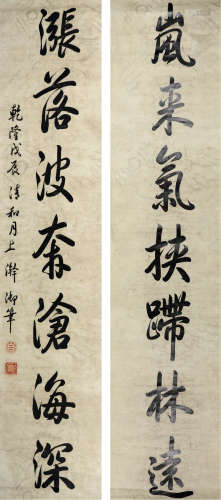 嵐来氣挾躔林遠
漲落波奔滄海深
乾隆戊辰清和月上澣御筆